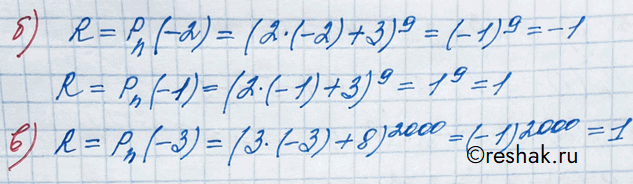 б) R = Pₙ(-2) = (2·(-2)+3)⁹ = (-1)⁹ = -1
R = Pₙ(-1) = (2·(-1)+3)⁹ = 1⁹ = 1
в) R = Pₙ(-3) = (3·(-3)+8)²⁰⁰⁰ = (-1)²⁰⁰⁰ = 1
©reshak.ru